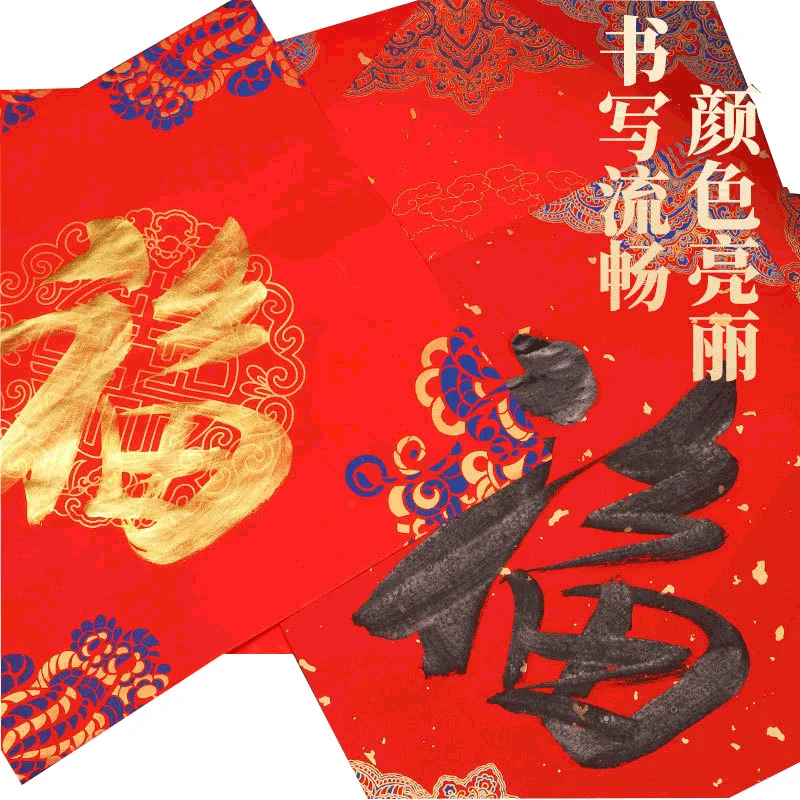 颜色亮丽
书写流畅
福
福